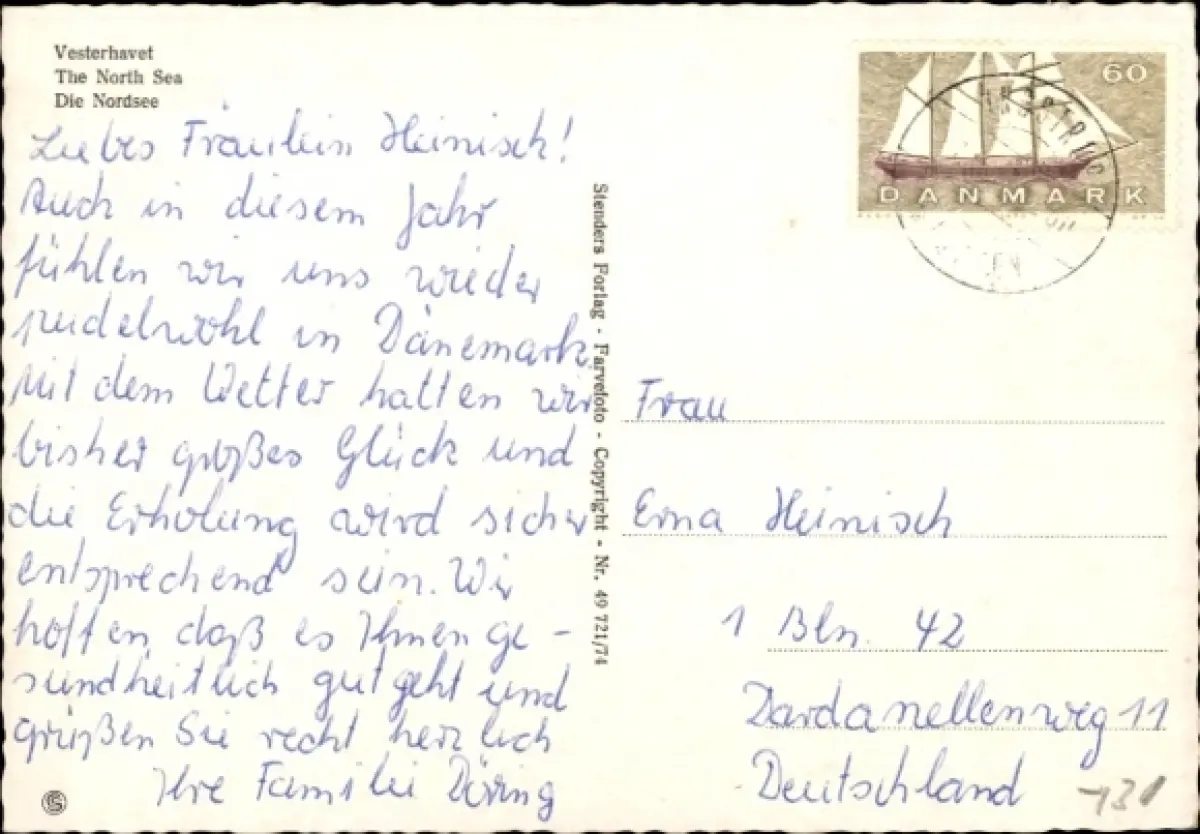 Vesterhavet
The North Sea
Die Nordsee
Liebes Fräulein Heinisch!
Auch in diesem Jahr
fühlen wir uns wieder
pudelwohl in Dänemark.
Mit dem Wetter hatten wir
bisher großes Glück und
die Erholung wird sicher
entsprechend sein. Wir
hoffen, daß es Ihnen ge-
sundheitlich gut geht und
grüßen Sie recht herzlich
Ihre Familie Döring
Stenders Forlag - Farvefoto - Copyright - Nr. 49 721/74
60
DANMARK
Frau
Erna Heinisch
1 Bln. 42
Dardanellenweg 11
Deutschland